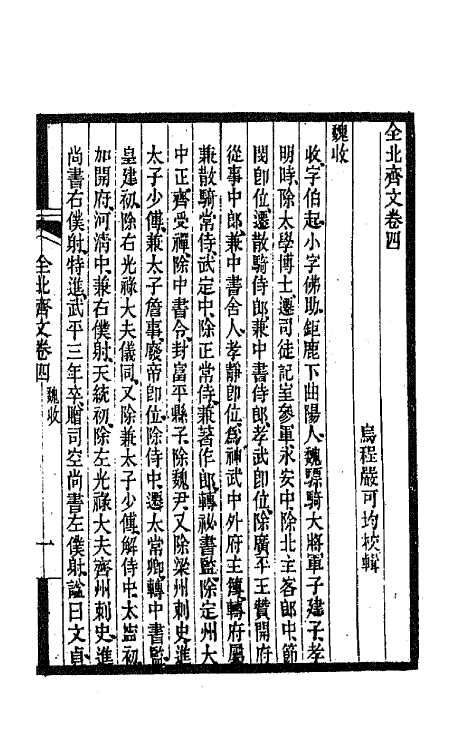 全北齊文卷四
烏程嚴可均校輯
魏收
收字伯起小字佛助鉅鹿下曲陽人魏驃騎大將軍子建子孝
明時除太學博士遷司徒記室參軍永安中除北主客郎中節
閔即位遷散騎侍郎兼中書侍郎孝武即位除廣平王贊開府
從事中郎兼中書舍人孝靜即位爲神武中外府主簿轉府屬
兼散騎常侍武定中除正常侍兼著作郎轉祕書監除定州大
中正齊受禪除中書令封富平縣子除魏尹又除梁州刺史進
太子少傅兼太子詹事廢帝即位除侍中遷太常卿轉中書監
皇建初除右光祿大夫儀同又除兼太子少傅解侍中太寧初
加開府河清中兼右僕射天統初除左光祿大夫齊州刺史進
尚書右僕射特進武平三年卒贈司空尚書左僕射謚曰文貞
全北齊文卷四 魏收 一